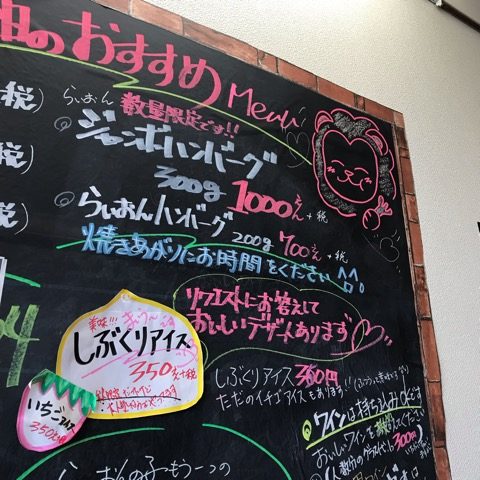 のおすすめ Menu
税)
らいおん 数量限定です!!
ジャンボハンバーグ
300g 1000えん+税
税)
らいおんハンバーグ 200g 700えん+税
税)
焼きあがりにお時間をください
リクエストにお答えして
おいしいデザートあります
美味!!!
しぶくりアイス
350+税
いちごアイス
350+税
しぶくりアイス 350円
ただのイチゴアイスもあります!!
ワインは持ち込みOKです
おいしいワインを教えてください
300円
らいおんの子もう一つの